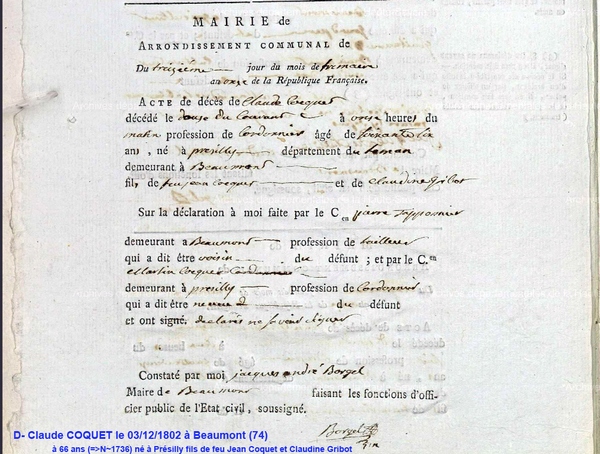 MAIRIE de
ARRONDISSEMENT COMMUNAL de
Du treizième jour du mois de frimaire
an onze de la République Française.
ACTE de décès de Claude Coquet
décédé le douze du Courant à onze heures du
matin profession de Cordonnier âgé de soixante six
ans, né à presilly département du Leman
demeurant à Beaumont
fils de feu jean Coquet et de Claudine Gribot
Sur la déclaration à moi faite par le C.en pierre Tapponnier
demeurant a Beaumont profession de tailleur
qui a dit être voisin du défunt ; et par le C.en
Martin Coquet Cordonnier
demeurant à presilly profession de Cordonnier
qui a dit être neveu du défunt
et ont signé. declarés ne savoir signer
Constaté par moi jacques andré Borgel
Maire de Beaumont faisant les fonctions d'offi-
cier public de l'Etat civil, soussigné.
Borgel
D- Claude COQUET le 03/12/1802 à Beaumont (74)
à 66 ans (=>N~1736) né à Présilly fils de feu Jean Coquet et Claudine Gribot